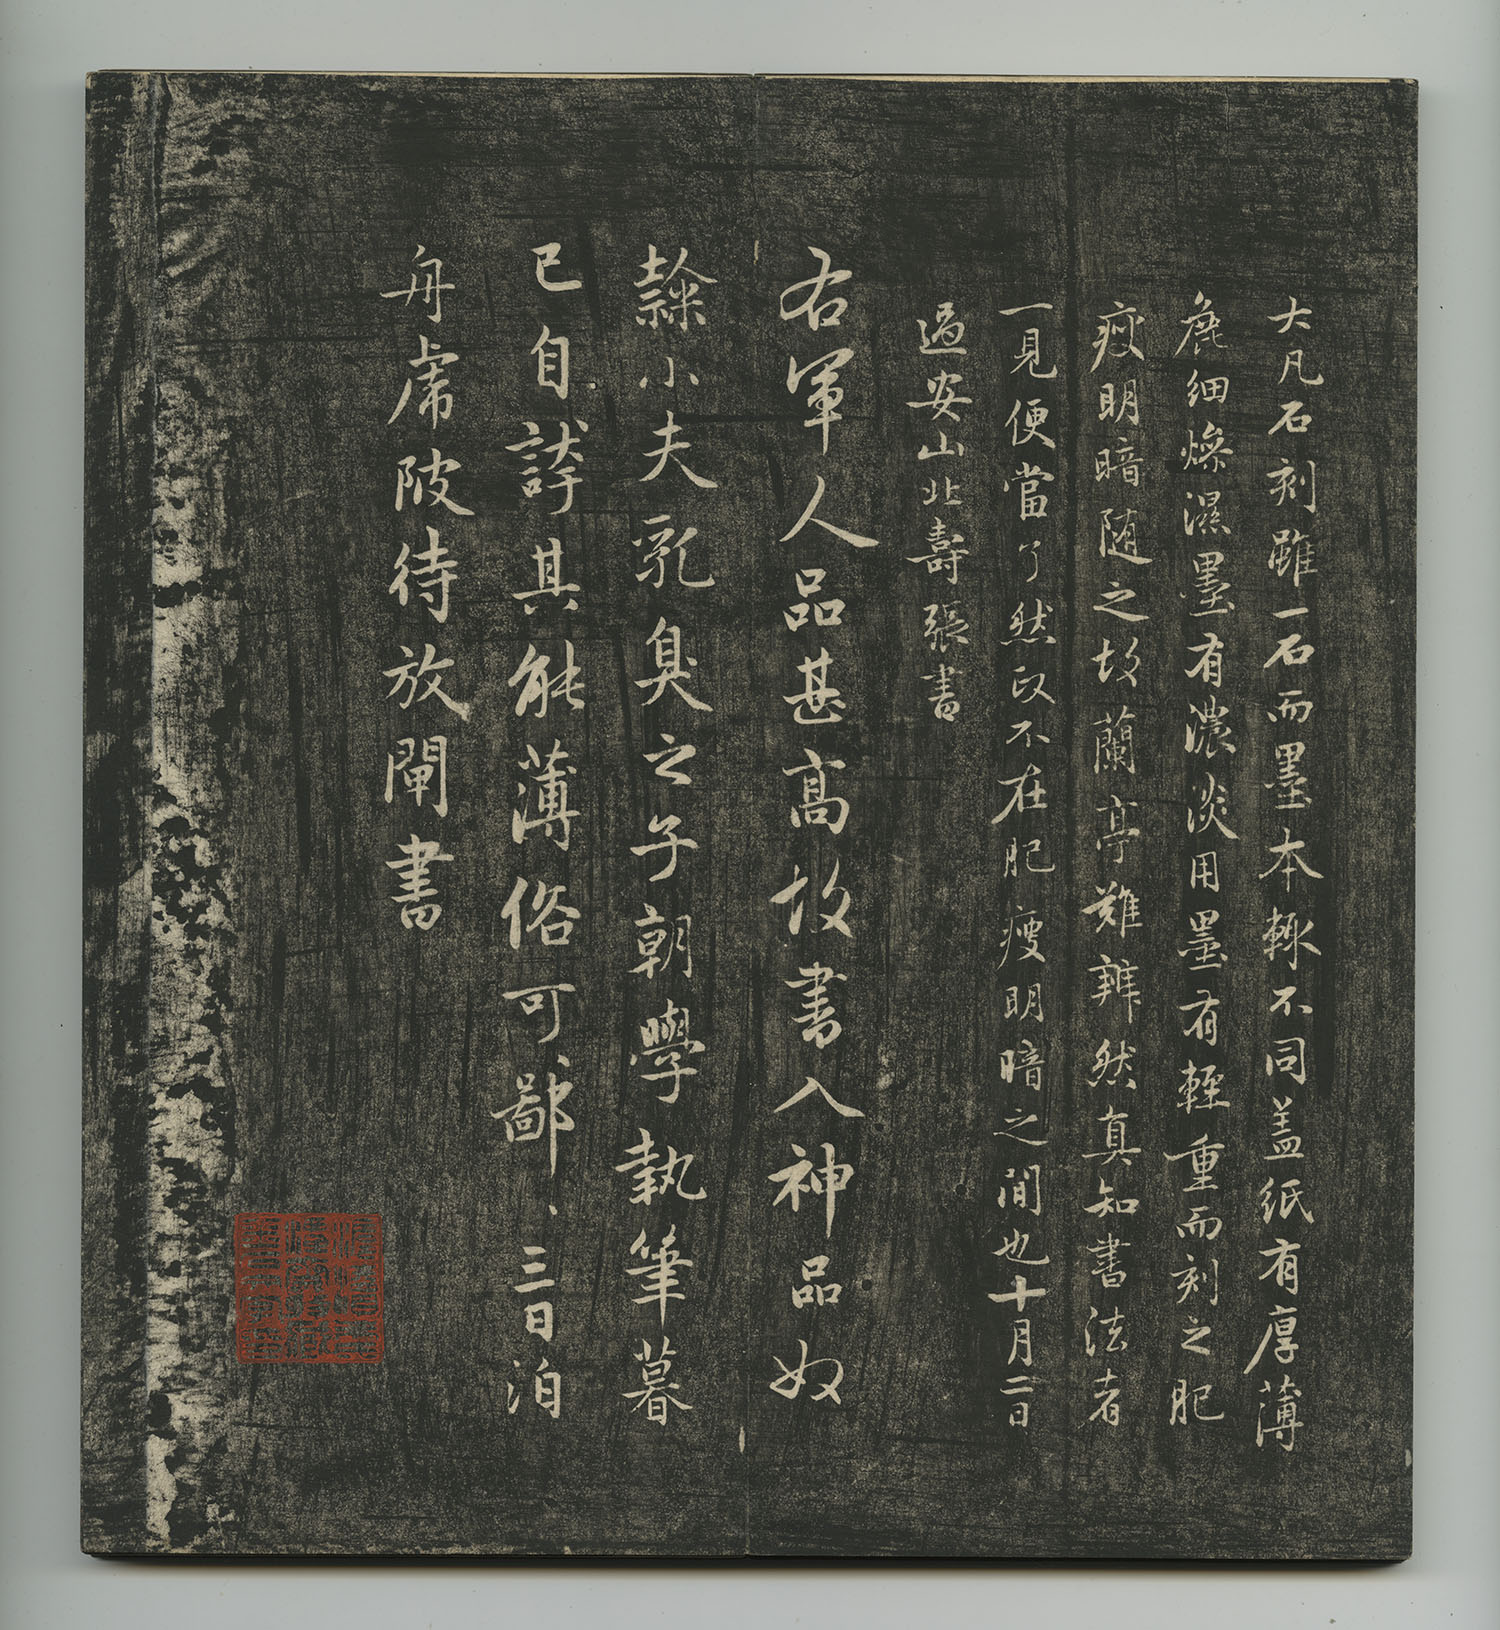 大凡石刻雖一石而墨本輙不同盖紙有厚薄
麁細燥濕墨有濃淡用墨有輕重而刻之肥
瘦明暗随之故蘭亭難辨然真知書法者
一見便當了然政不在肥瘦明暗之間也十月二日
過安山北壽張書
右軍人品甚高故書入神品奴
隸小夫乳臭之子朝學執筆暮
已自誇其能薄俗可鄙可鄙三日泊
舟虎陂待放閘書